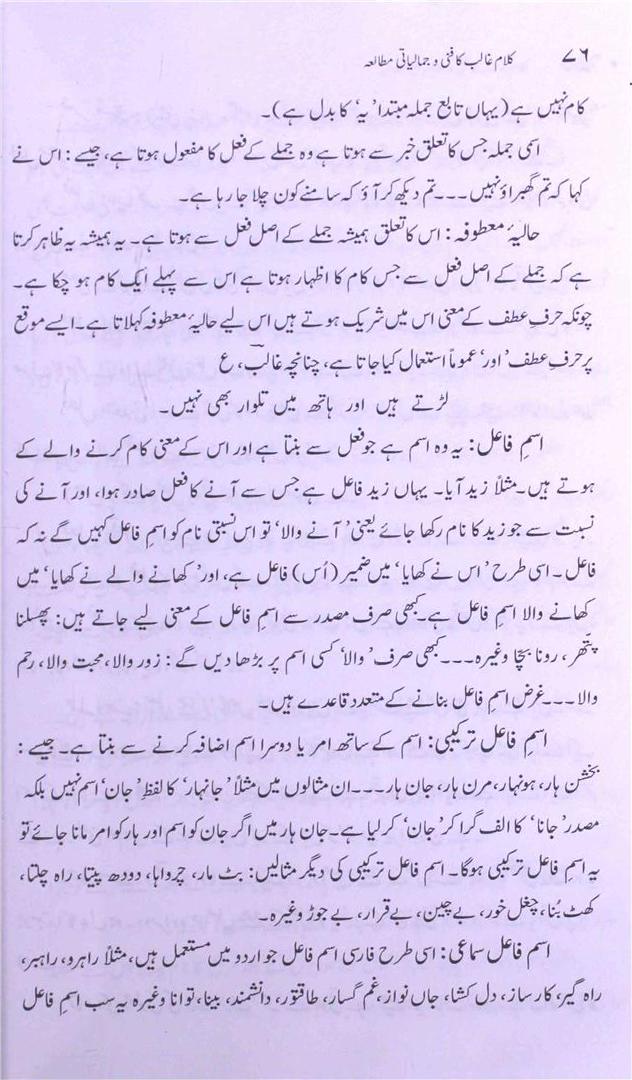 ۷۶ کلام غالب کا فنی و جمالیاتی مطالعہ
کام نہیں ہے (یہاں تابع جملہ مبتدا 'یہ' کا بدل ہے)۔
اسی جملہ جس کا تعلق خبر سے ہوتا ہے وہ جملے کے فعل کا مفعول ہوتا ہے، جیسے: اس نے
کہا کہ تم گھبراؤ نہیں۔۔۔ تم دیکھ کر آؤ کہ سامنے کون چلا جا رہا ہے۔
حالیۂ معطوفہ: اس کا تعلق ہمیشہ جملے کے اصل فعل سے ہوتا ہے۔ یہ ہمیشہ یہ ظاہر کرتا
ہے کہ جملے کے اصل فعل سے جس کام کا اظہار ہوتا ہے اس سے پہلے ایک کام ہو چکا ہے۔
چونکہ حرفِ عطف کے معنی اس میں شریک ہوتے ہیں اس لیے حالیۂ معطوفہ کہلاتا ہے۔ ایسے موقع
پر حرفِ عطف 'اور' عموماً استعمال کیا جاتا ہے، چنانچہ غالبؔ، ع
لڑتے ہیں اور ہاتھ میں تلوار بھی نہیں۔
اسمِ فاعل: یہ وہ اسم ہے جو فعل سے بنتا ہے اور اس کے معنی کام کرنے والے کے
ہوتے ہیں۔ مثلاً زید آیا۔ یہاں زید فاعل ہے جس سے آنے کا فعل صادر ہوا، اور آنے کی
نسبت سے جو زید کا نام رکھا جائے یعنی 'آنے والا' تو اس نسبتی نام کو اسمِ فاعل کہیں گے نہ کہ
فاعل۔ اسی طرح 'اس نے کھایا' میں ضمیر (اُس) فاعل ہے، اور 'کھانے والے نے کھایا' میں
کھانے والا اسمِ فاعل ہے۔ کبھی صرف مصدر سے اسمِ فاعل کے معنی لیے جاتے ہیں: پھسلنا
پتھر، رونا بچا وغیرہ۔۔۔ کبھی صرف 'والا' کسی اسم پر بڑھا دیں گے: زور والا، محبت والا، رحم
والا۔۔۔ غرض اسمِ فاعل بنانے کے متعدد قاعدے ہیں۔
اسم فاعل ترکیبی: اسم کے ساتھ امر یا دوسرا اسم اضافہ کرنے سے بنتا ہے۔ جیسے:
بخشن ہار، ہونہار، مرن ہار، جان ہار۔۔۔ ان مثالوں میں مثلاً 'جانہار' کا لفظِ 'جان' اسم نہیں بلکہ
مصدر 'جانا' کا الف گرا کر 'جان' کر لیا ہے۔ جان ہار میں اگر جان کو اسم اور ہار کو امر مانا جائے تو
یہ اسمِ فاعل ترکیبی ہوگا۔ اسم فاعل ترکیبی کی دیگر مثالیں: بٹ مار، چرواہا، دودھ پیتا، راہ چلتا،
کھٹ بُنا، چغل خور، بے چین، بے قرار، بے جوڑ وغیرہ۔
اسم فاعل سماعی: اسی طرح فارسی اسم فاعل جو اردو میں مستعمل ہیں، مثلاً راہرو، راہبر،
راہ گیر، کارساز، دل کشا، جاں نواز، غم گسار، طاقتور، دانشمند، بینا، توانا وغیرہ یہ سب اسمِ فاعل